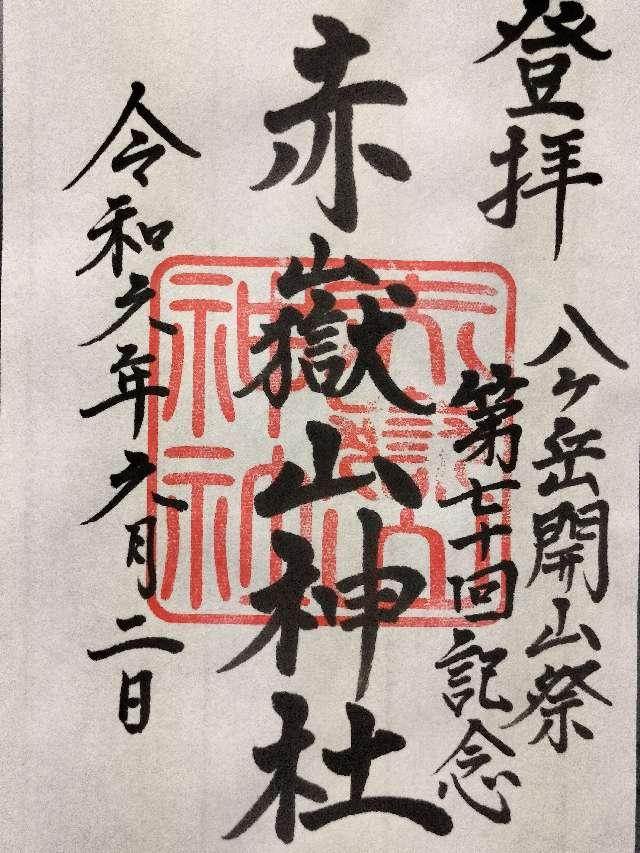 登拝
八ヶ岳開山祭
第七十回記念
赤嶽山神社
令和六年六月二日